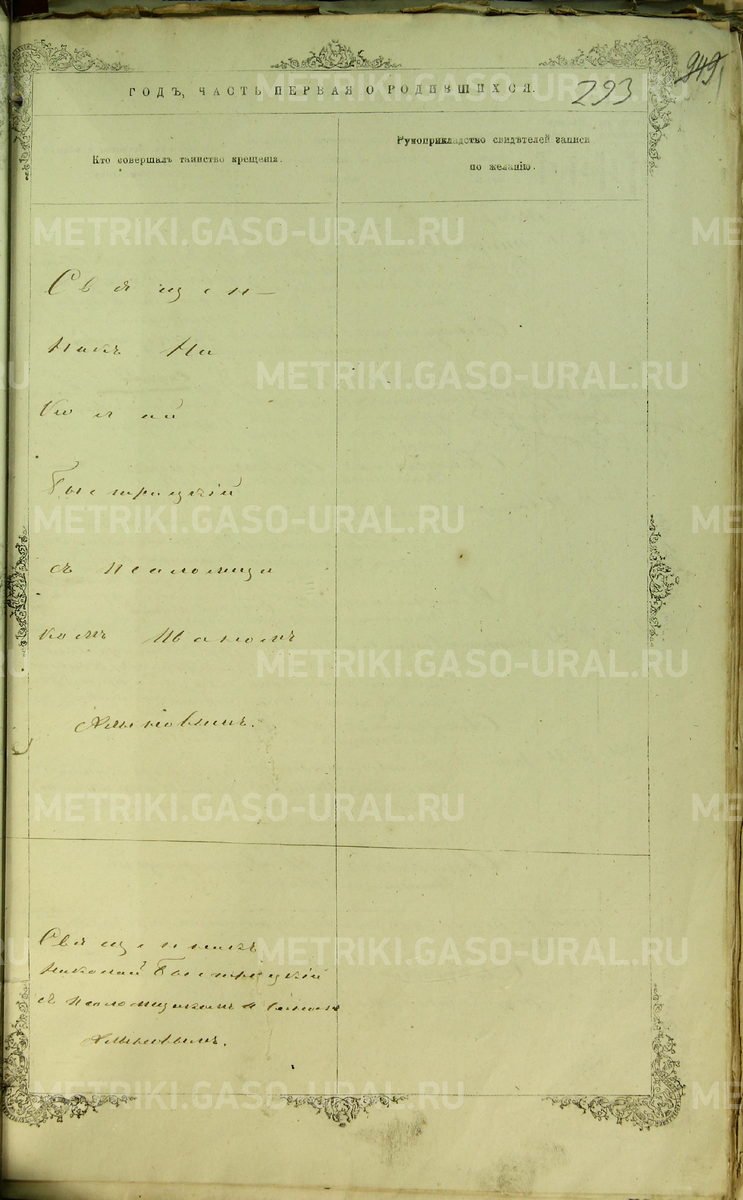 ГОДЪ, ЧАСТЬ ПЕРВАЯ О РОДИВШИХСЯ.
293
949
Кто совершалъ таинство крещенія.
Рукоприкладство свидѣтелей записи
по желанію.
Священ-
никъ Ни
колай
Быстрицкій
съ псаломщи
комъ Иваномъ
Священникъ
Николай Быстрицкій
съ псаломщикомъ Иваномъ
METRIKI.GASO-URAL.RU